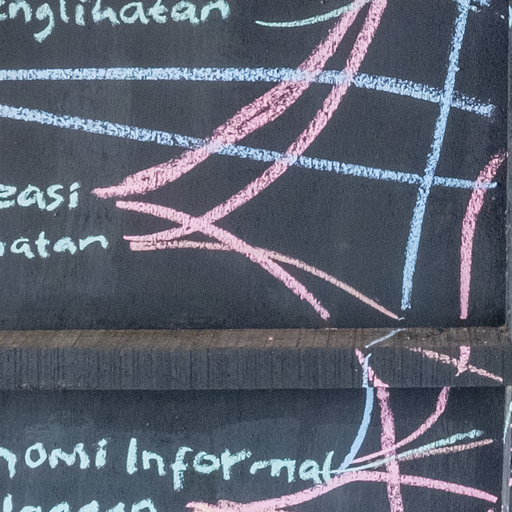 nglihatan
easi
hatan
nomi Informal